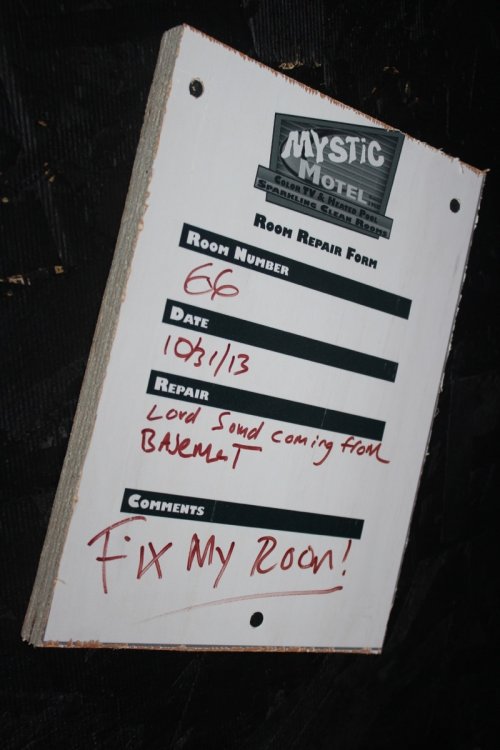 MYSTIC
MOTEL
COLOR TV & HEATED POOL
SPARKLING CLEAN ROOMS
ROOM REPAIR FORM
ROOM NUMBER
66
DATE
10/31/13
REPAIR
Loud Sound coming from
BASEMENT
COMMENTS
Fix My Room!